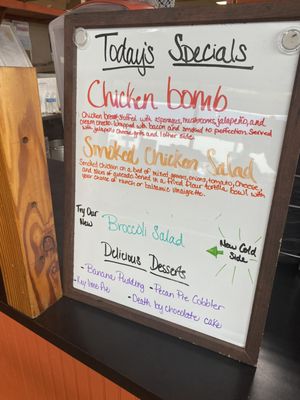 Today's Specials
Chicken bomb
Chicken breast stuffed with asparagus, mushrooms, jalapeño, and
cream cheese. Wrapped with bacon and smoked to perfection. Served
with jalapeño cheese grits and 1 other side.
Smoked Chicken Salad
Smoked chicken on a bed of mixed greens, onions, tomato, cheese,
and slices of avocado. Served in a fried flour tortilla bowl with
your choice of ranch or balsamic vinaigrette.
Try Our
New
Broccoli Salad
New Cold
Side
Delicious Desserts
• Banana Pudding
• Pecan Pie Cobbler
• Key lime Pie
• Death by chocolate cake